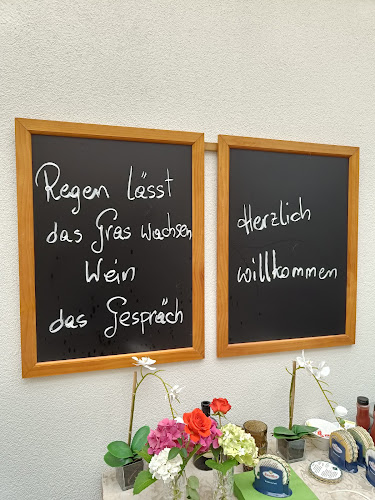 Regen lässt
das Gras wachsen
Wein
das Gespräch
Herzlich
willkommen